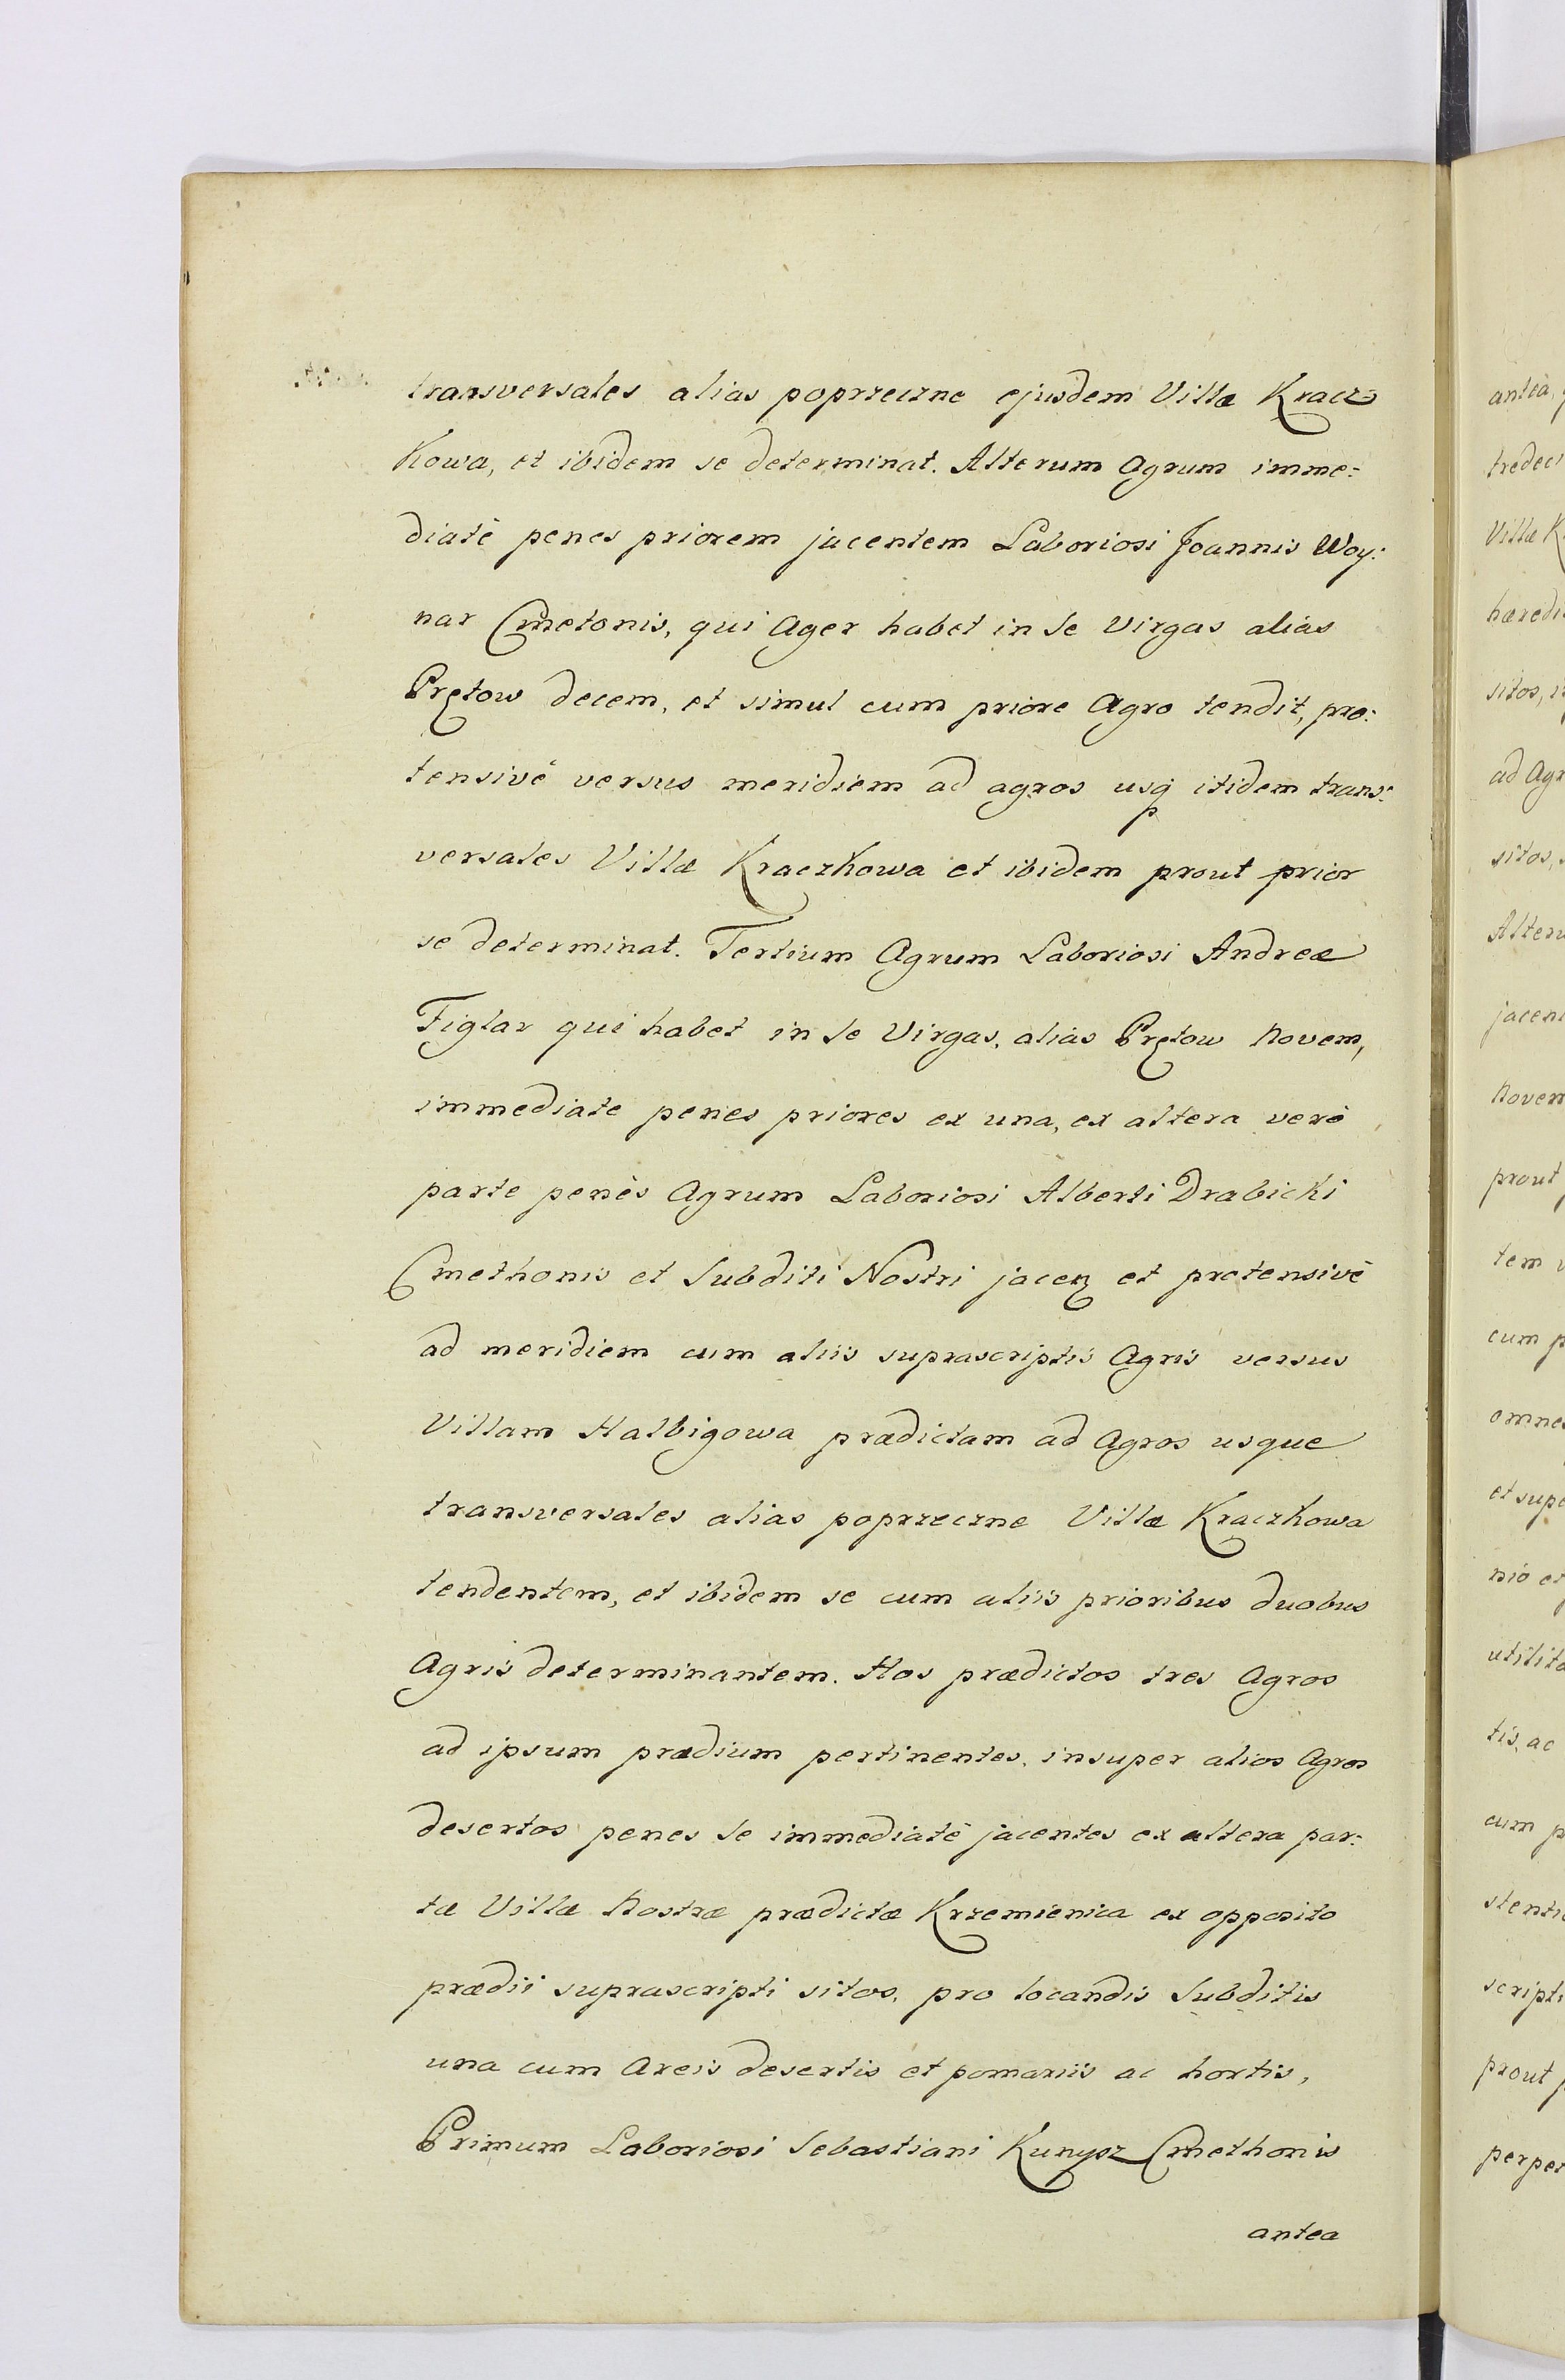 transversales alias poprzeczne ejusdem Villæ Kracz=
kowa, et ibidem se determinat. Alterum Agrum imme=
diatè penes priorem jacentem Laboriosi Joannis Woy=
nar Cmetonis, qui Ager habet in se Virgas alias
Prętow decem, et simul cum priore Agro tendit, pro=
tensivè versus meridiem ad agros usq itidem trans=
versales Villæ Kraczkowa et ibidem prout prior
se determinat. Tertium Agrum Laboriosi Andreæ
Figlar qui habet in se Virgas, alias Prętow Novem,
immediate penes priores ex una, ex altera verò
parte penès Agrum Laboriosi Alberti Drabicki
Cmethonis et Subditi Nostri jacen et protensivè
ad meridiem cum aliis suprascriptis Agris versus
Villam Halbigowa prædictam ad Agros usque
transversales alias poprzeczne Villæ Kraczkowa
tendentem, et ibidem se cum aliis prioribus duobus
Agris determinantem. Hos prædictos tres Agros
ad ipsum prædium pertinentes, insuper alios Agros
desertos penes se immediatè jacentes ex altera par=
tæ Villæ Nostræ prædictæ Krzemienica ex opposito
prædii suprascripti sitos, pro locandis Subditis
una cum Areis desertis et pomariis ac hortis,
Primum Laboriosi Sebastiani Kunysz Cmethonis
antea
antea,
tredeci
Villæ K
hæredi
sitos,
ad Agr
sitos,
Alteru
jacent
Novem
prout
tem
cum p
omnes
et supe
nio et
utilita
tis, ac
cum p
stenti
scripti
prout
perpet